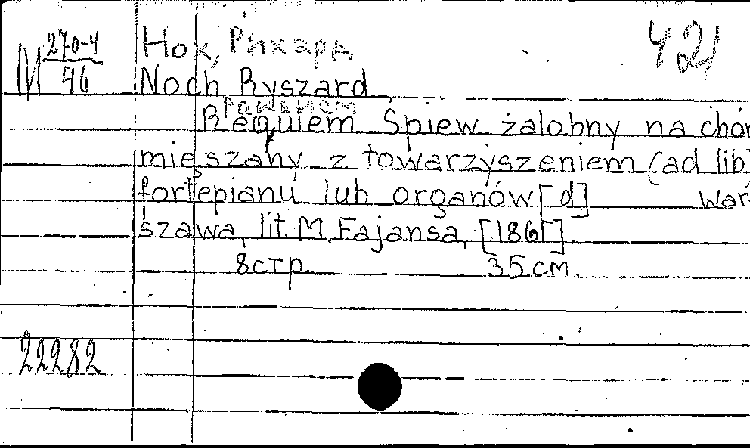 М 270-4/46
Нох, Рихард
421
Noch Ryszard
Реквием
Requiem Śpiew żałobny na chór
mieszany z towarzyszeniem (ad lib)
fortepianu lub organów [d] War-
szawa, lit. M. Fajansa, [1861]
8 стр. 35 см.
22282